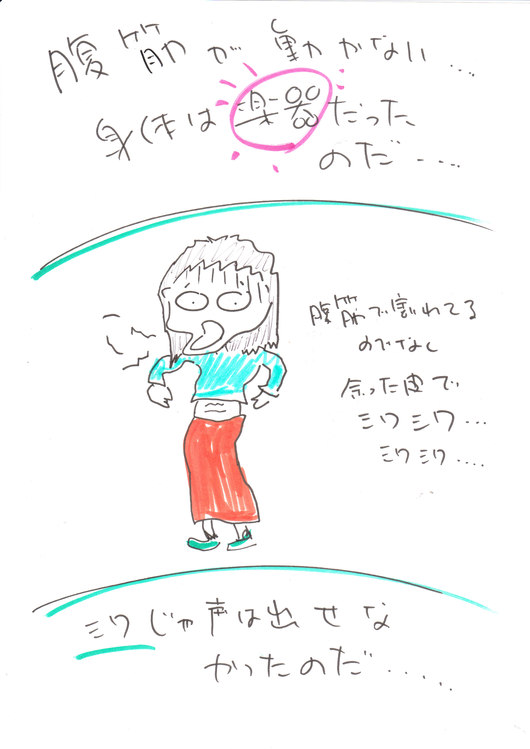 腹筋が動かない....
身体は楽器だった、
のだ....
腹筋で割れてる
のでなく
余った皮で
ミワミワ...
ミワミワ....
ミワじゃ声は出せな
かったのだ.....